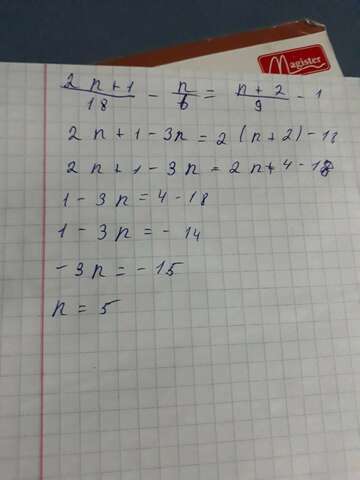 Magister
(2n+1)/18 - n/6 = (n+2)/9 - 1
2n+1-3n=2(n+2)-18
2n+1-3n=2n+4-18
1-3n=4-18
1-3n=-14
-3n=-15
n=5